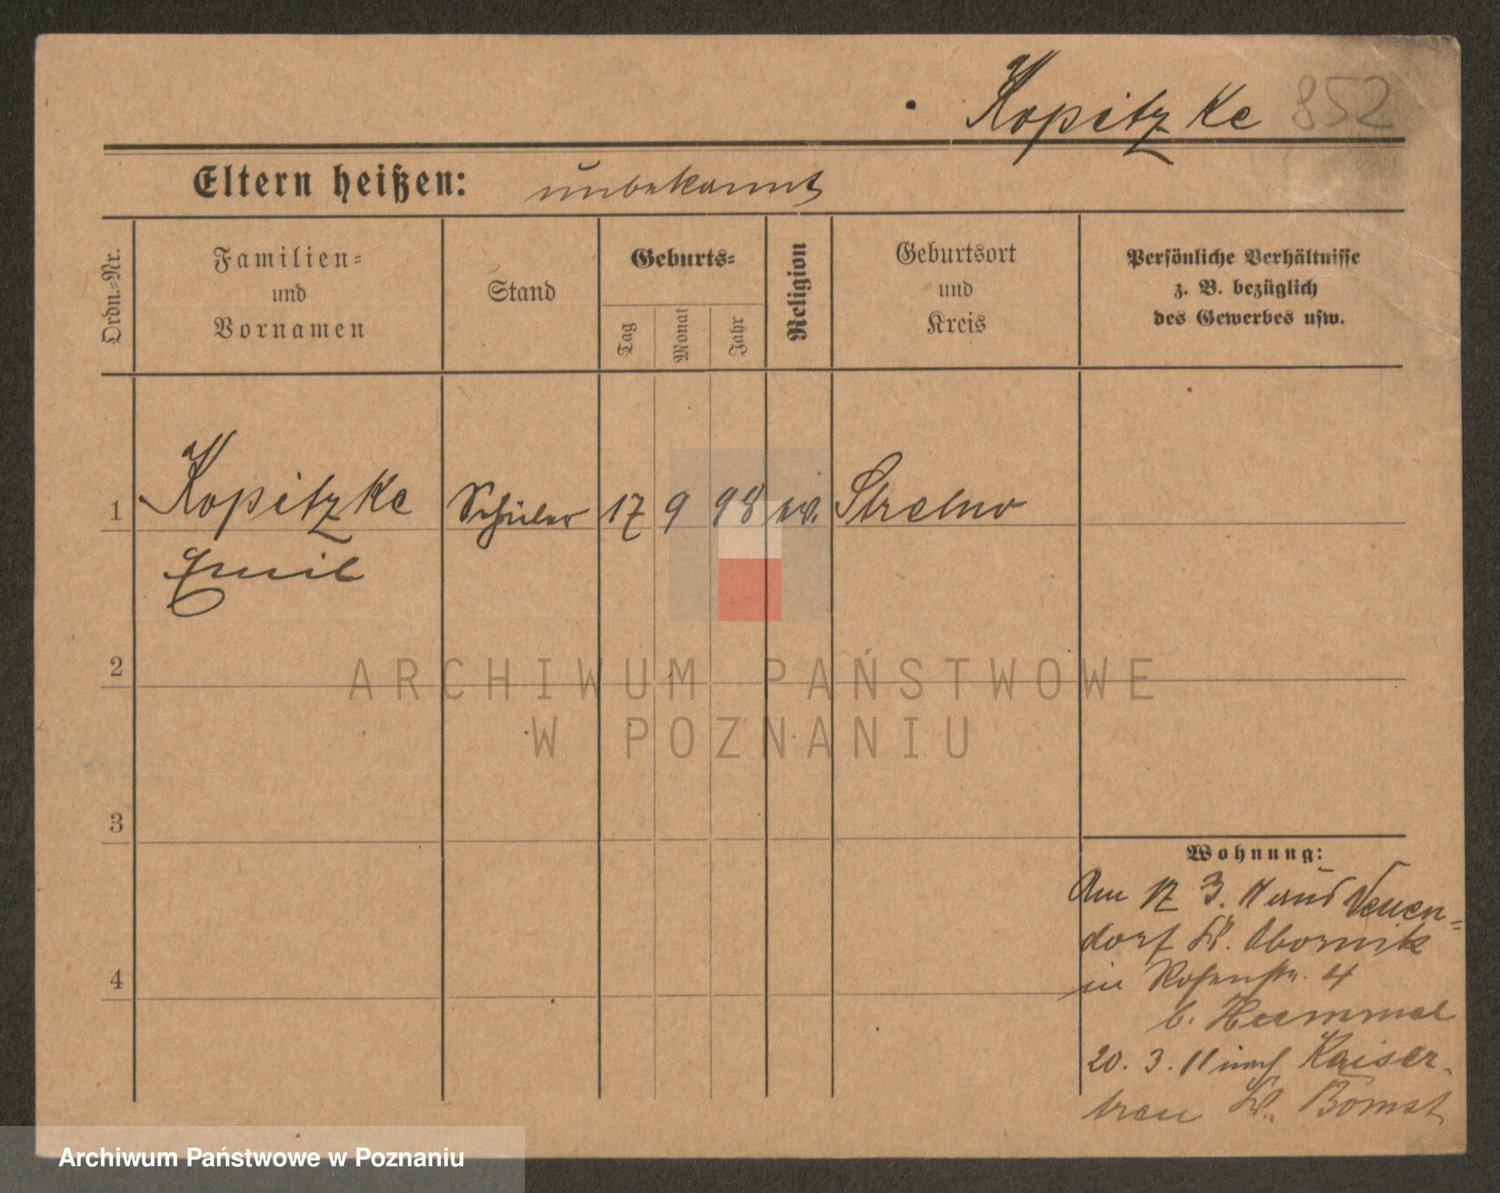 Kopitzke 852
Eltern heißen: unbekannt
Ordn.-Nr.
Familien-
und
Vornamen
Stand
Geburts-
Tag
Monat
Jahr
Religion
Geburtsort
und
Kreis
Persönliche Verhältnisse
z. B. bezüglich
des Gewerbes usw.
1 Kopitzke Schüler 17 9 98 ev. Strelno
Emil
2
3
4
Wohnung:
Am 17 3. 11 aus Neuen-
dorf Kr. Obornik
in Rosenstr. 4
b. Hummel
20. 3. 11 nach Kaiser-
treu Kr. Bomst
ARCHIWUM PAŃSTWOWE
W POZNANIU
Archiwum Państwowe w Poznaniu